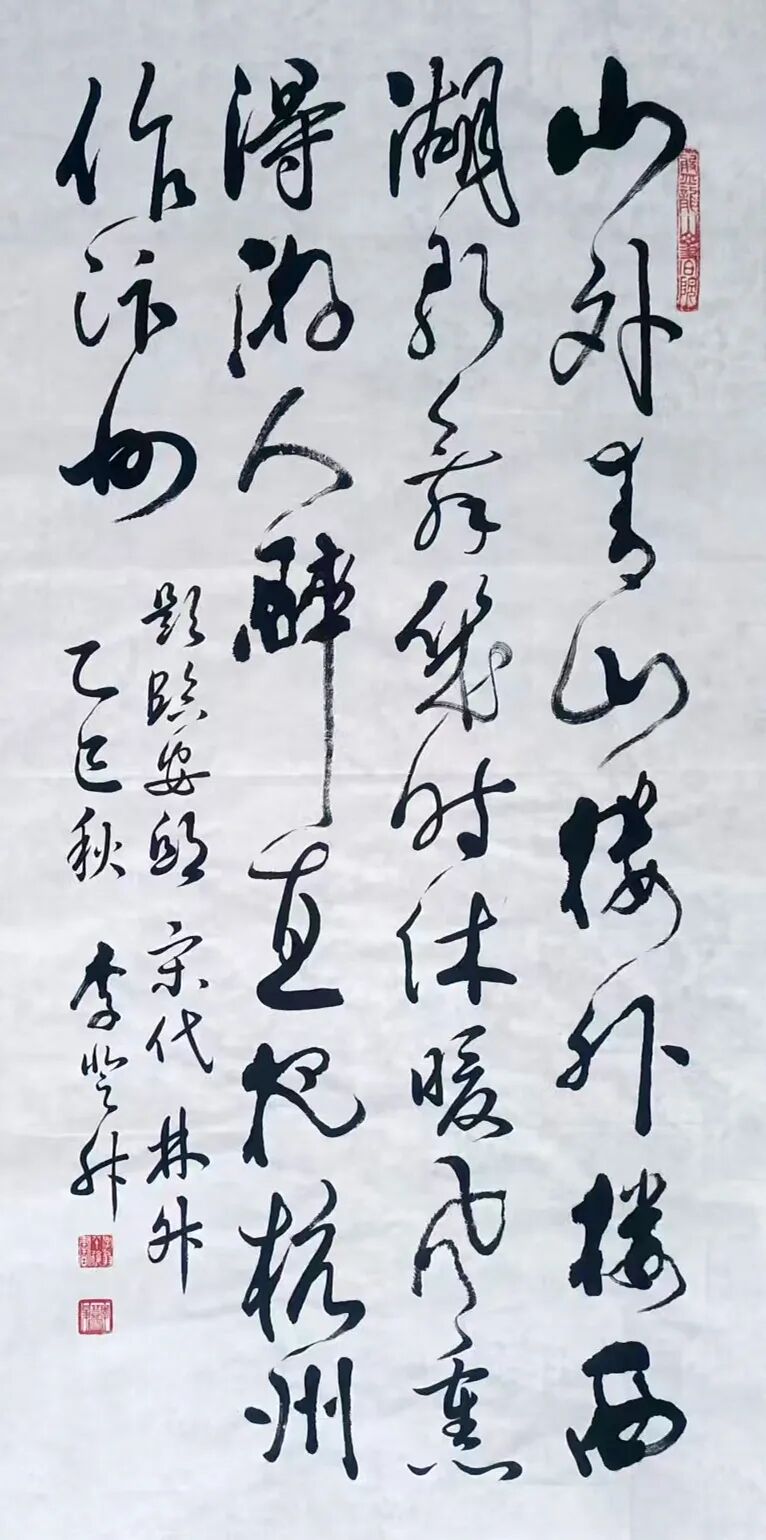 山外青山楼外楼西
湖歌舞幾时休暖风熏
得游人醉直把杭州
作汴州
题临安邸 宋代 林升
乙巳秋 李登升